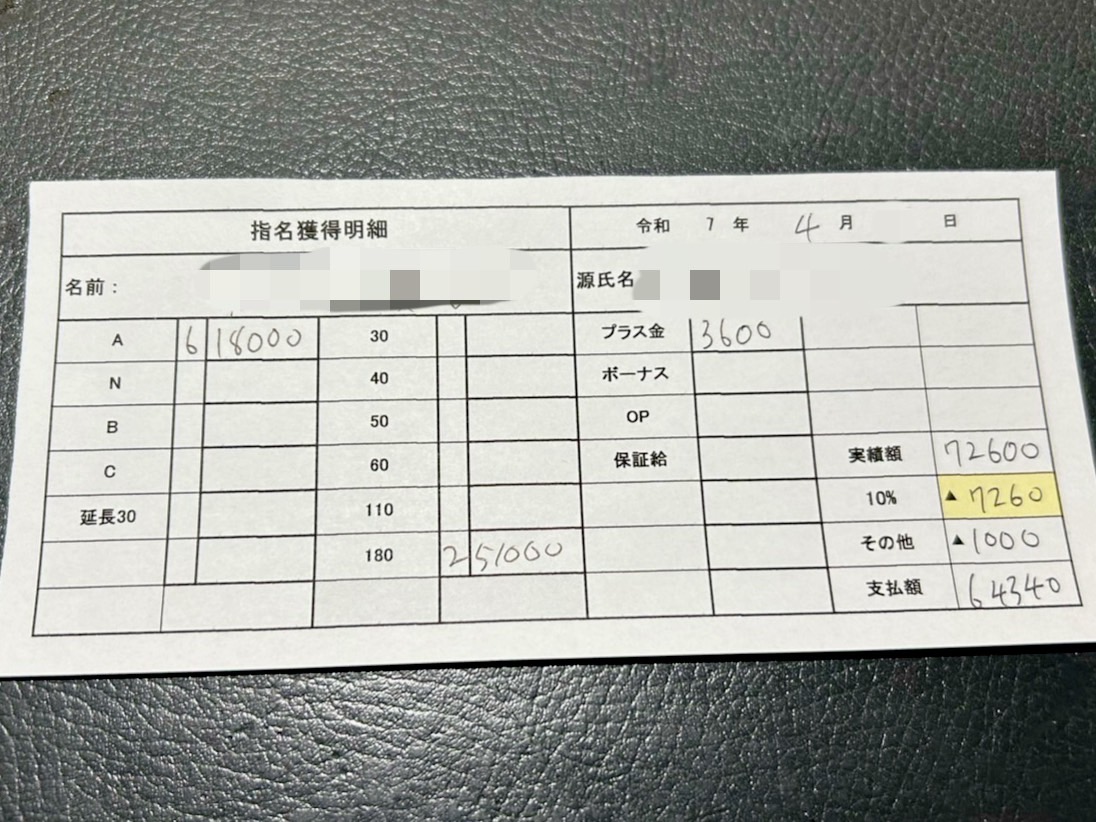 指名獲得明細 令和 7 年 4 月 日
名前： 源氏名
A 6 18000 30 プラス金 3600
N 40 ボーナス
B 50 OP
C 60 保証給 実績額 72600
延長30 110 10% ▲ 7260
180 2 51000 その他 ▲ 1000
支払額 64340